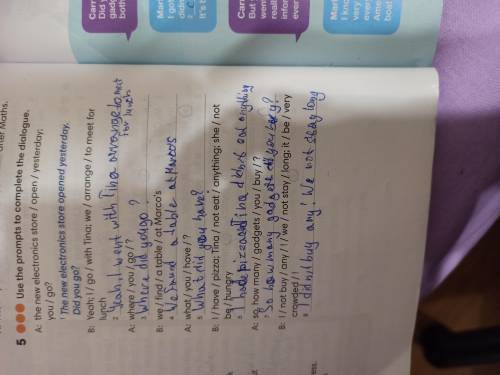 after Maths.
5 Use the prompts to complete the dialogue.
A: the new electronics store / open / yesterday;
you / go?
1 The new electronics store opened yesterday.
Did you go?
B: Yeah; I / go / with Tina; we / arrange / to meet for
lunch
2 Yeah, I went with Tina arrange to meet
for lunch
A: where / you / go / ?
3 Where did you go ?
B: we / find / a table / at Marco's
4 We found a table at Marcos
A: what / you / have / ?
5 What did you have?
B: I / have / pizza; Tina / not eat / anything; she / not
be / hungry
6 I had pizza and Tina didn't eat anything
A: so, how many / gadgets / you / buy / ?
7 So how many gadgets did you buy?
B: I / not buy / any / ! / we / not stay / long; it / be / very
crowded / !
8 I didn't buy any! We not stay long
Carr
Did y
gadg
both
Mark
I go
didn
It's t
Carr
But
went
reall
infor
ever
Mark
I kno
very
every
Ame
boat